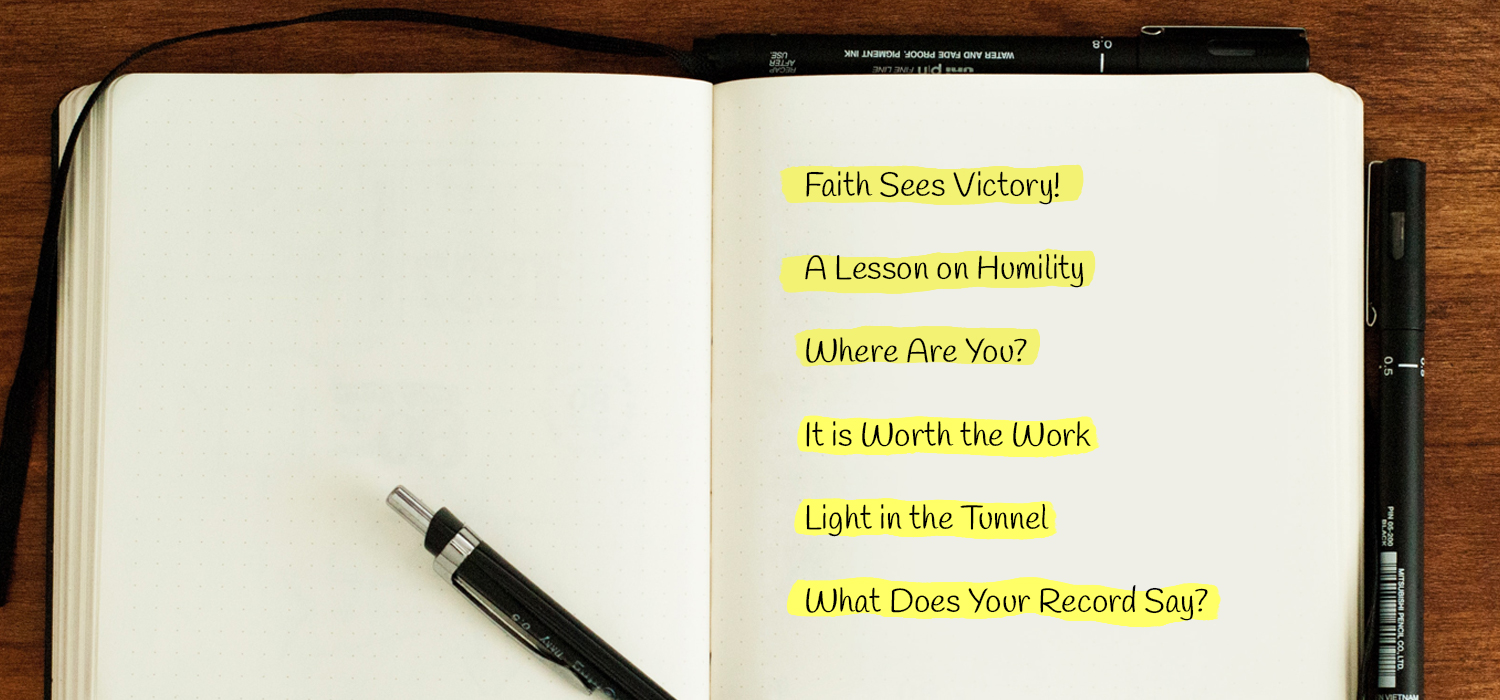 RECAP
AFTER
USE.
WATER AND FADE PROOF, PIGMENT INK
uni pin FINE LINE
0.8
Faith Sees Victory!
A Lesson on Humility
Where Are You?
It is Worth the Work
Light in the Tunnel
What Does Your Record Say?
0.5
PIN 05-200
BLACK
MITSUBISHI PENCIL CO., LTD.
VIETNAM
0.5